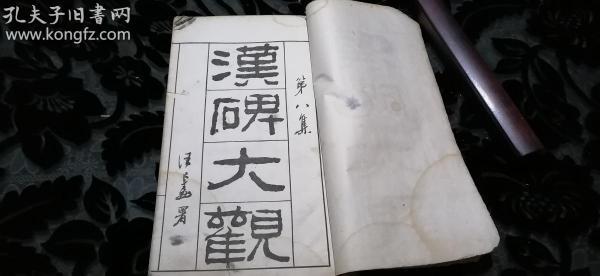 孔夫子旧书网
www.kongfz.com
第八集
漢碑大觀
署